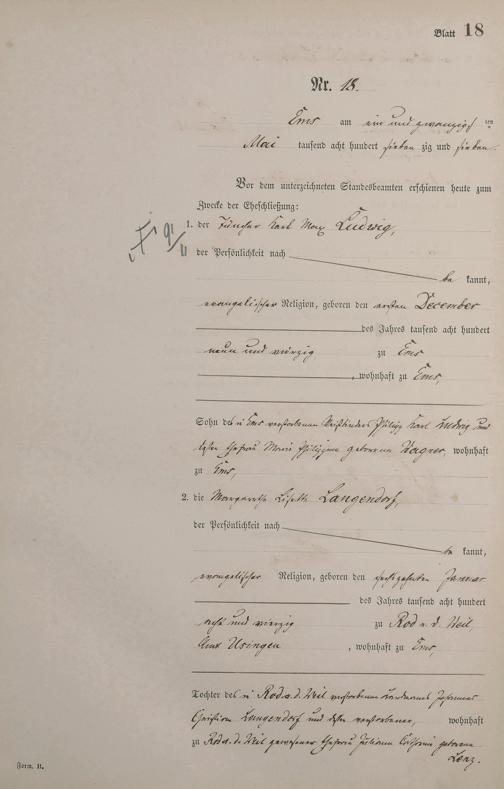 Blatt 18
Nr. 18.
Ems am ein und zwanzigsten
Mai tausend acht hundert sieben zig und sieben.
Vor dem unterzeichneten Standesbeamten erschienen heute zum
Zwecke der Eheschließung:
1. der Tüncher Karl Max Ludwig,
der Persönlichkeit nach
be kannt,
evangelischer Religion, geboren den ersten December
des Jahres tausend acht hundert
neun und vierzig zu Ems
, wohnhaft zu Ems,
Sohn des zu Ems verstorbenen Philipp Karl Ludwig und
dessen Ehefrau Marie Philippine geborene Wagner, wohnhaft
zu Ems,
2. die Margarethe Lisette Langendorf,
der Persönlichkeit nach
be kannt,
evangelischer Religion, geboren den sechszehnten Januar
des Jahres tausend acht hundert
acht und vierzig zu Rod a. d. Weil
Amt Usingen , wohnhaft zu Ems,
Tochter des zu Rod a. d. Weil verstorbenen Johannes
Christian Langendorf und dessen verstorbenen, wohnhaft
zu Rod a. d. Weil gewesener Ehefrau Juliane geborene
Lenz.
Form. B.